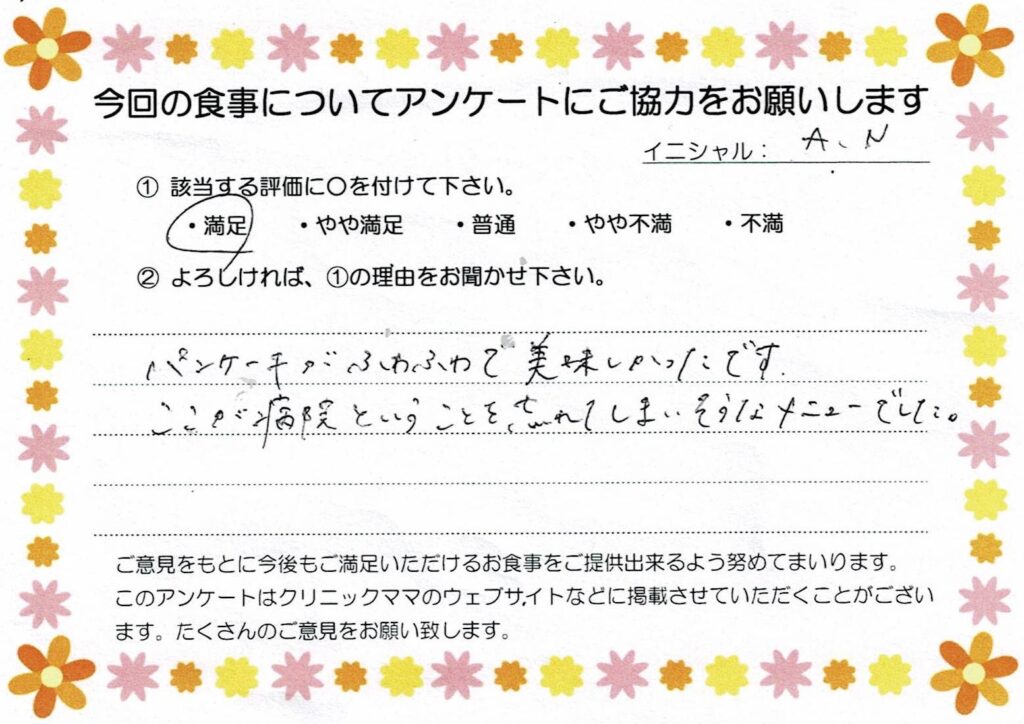 今回の食事についてアンケートにご協力をお願いします
イニシャル： A、N
① 該当する評価に〇を付けて下さい。
・満足 ・やや満足 ・普通 ・やや不満 ・不満
② よろしければ、①の理由をお聞かせ下さい。
パンケーキがふわふわで美味しかったです.
ここが病院ということを忘れてしまいそうなメニューでした。
ご意見をもとに今後もご満足いただけるお食事をご提供出来るよう努めてまいります。
このアンケートはクリニックママのウェブサイトなどに掲載させていただくことがござい
ます。たくさんのご意見をお願い致します。